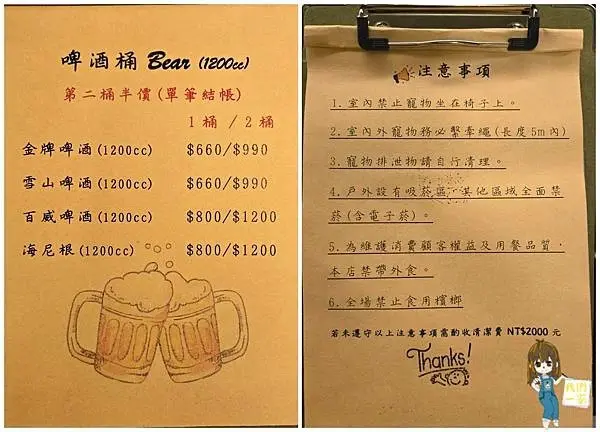 啤酒桶 Bear (1200cc)
第二桶半價(單筆結帳)
1桶 / 2桶
金牌啤酒(1200cc) $660/$990
雪山啤酒(1200cc) $660/$990
百威啤酒(1200cc) $800/$1200
海尼根(1200cc) $800/$1200
注意事項
1.室內禁止寵物坐在椅子上。
2.室內外寵物務必繫牽繩(長度5m內)
3.寵物排泄物請自行清理。
4.戶外設有吸菸區,其他區域全面禁
菸(含電子菸)。
5.為維護消費顧客權益及用餐品質,
本店禁帶外食。
6.全場禁止食用檳榔
若未遵守以上注意事項需酌收清潔費 NT$2000 元
Thanks!
我們
一家